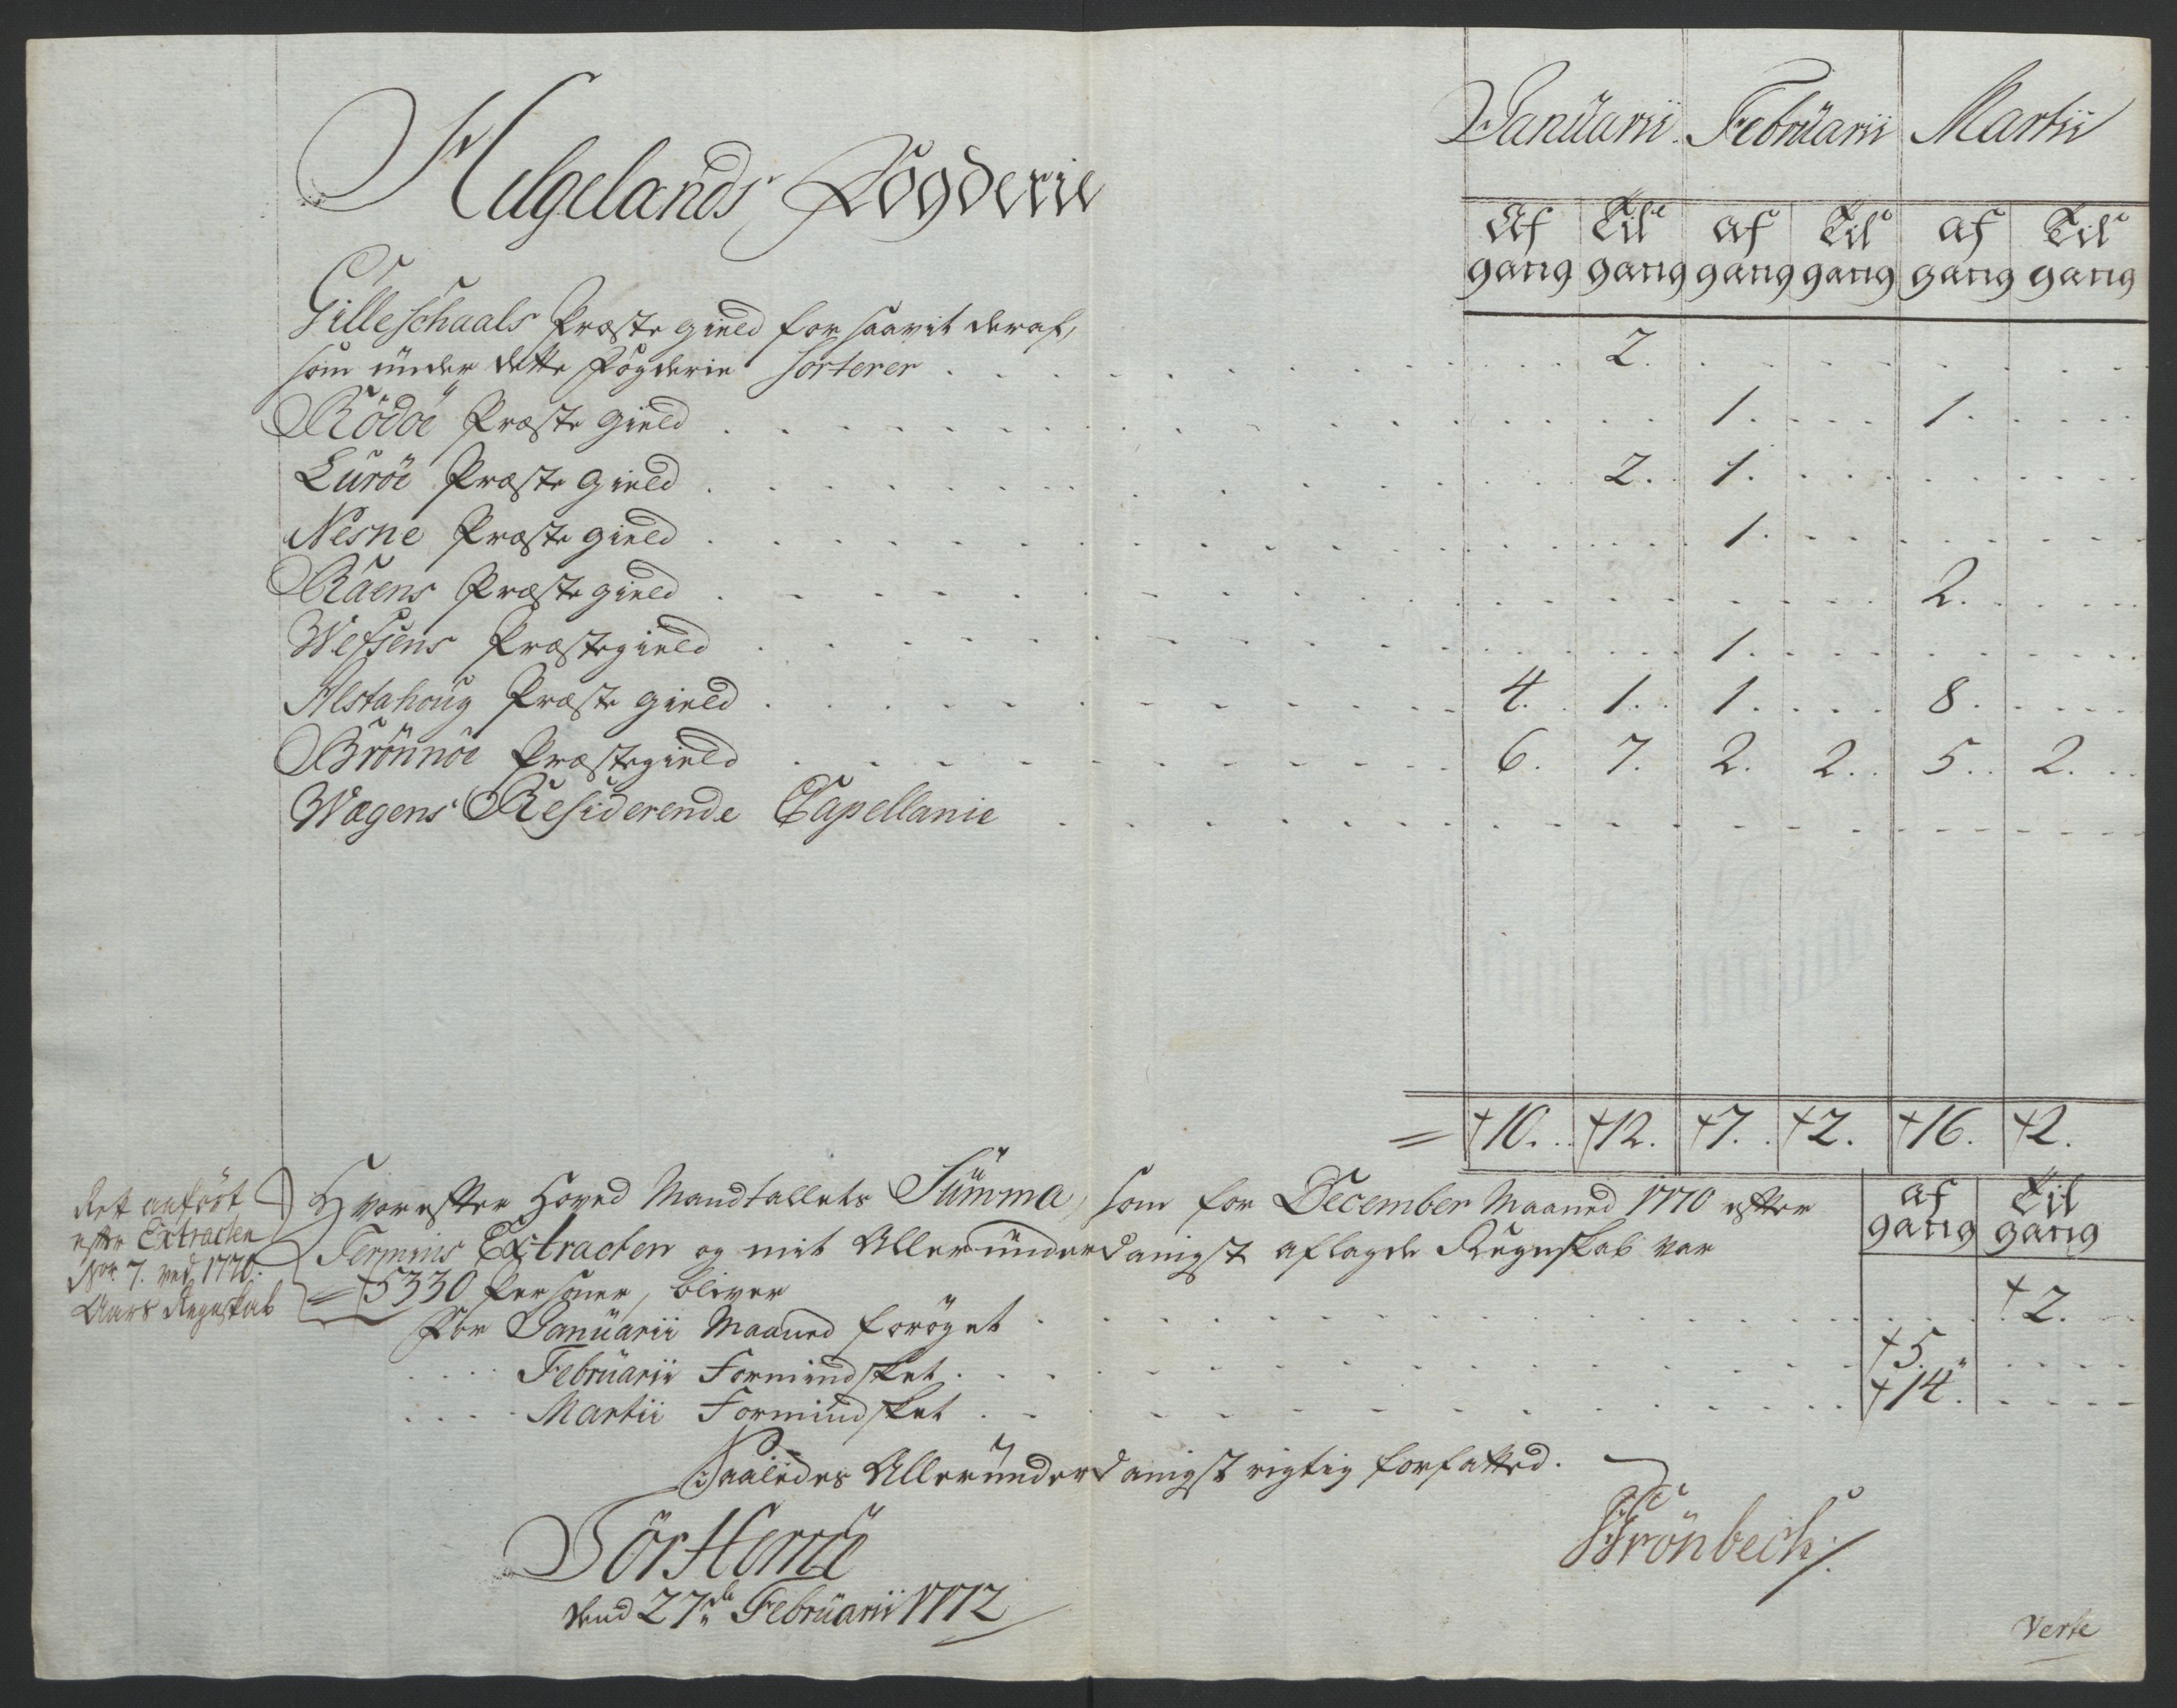 Januarii Februarii Martii
Helgelands Fogderie
Af gang Til gang af gang Til gang af gang Til gang
Gilleschaals Præste gield for saavit deraf,
som under dette Fogderie Sorterer . . . 2. . . .
Rödöe Præste Gield . . . 1. . . . 1. . . .
Luröe Præste Gield . . . 2. . 1. . . .
Nesne Præste gield . . . 1. . . .
Raens Præste gield . . . 2. . . .
Wefsens Præstegield . . . 1. . . .
Alstahoug Præste gield . . . 4. . 1. . 1. . . . 8. . . .
Brönnöe Præstegield . . . 6. 7. 2. 2. . 5. . 2. . .
Wægens Residerende Capellanie . . .
= †10. . †12. †7. . †2. †16. †2.
Ret anfört
efter Extracten
Nor. 7. ved 1770.
Aars Regnskab
Hvorefter Hoved Mandtallets Summa, som for December Maaned 1770 efter
Termins Extracten og mit Allerunderdanigst aflagde Regnskab var
= †5330 Personer, bliver
af gang Til gang
For Januarii Maaned foröget . . . †2. . .
. . . Februarii Formindsket . . . †5. . . .
. . . Martii Formindsket . . . †14. . . .
Saaledes Allerunderdanigst rigtig forfatted.
Tör Hernæ
dend 27de Februarii 1772
Grönbech
Verte